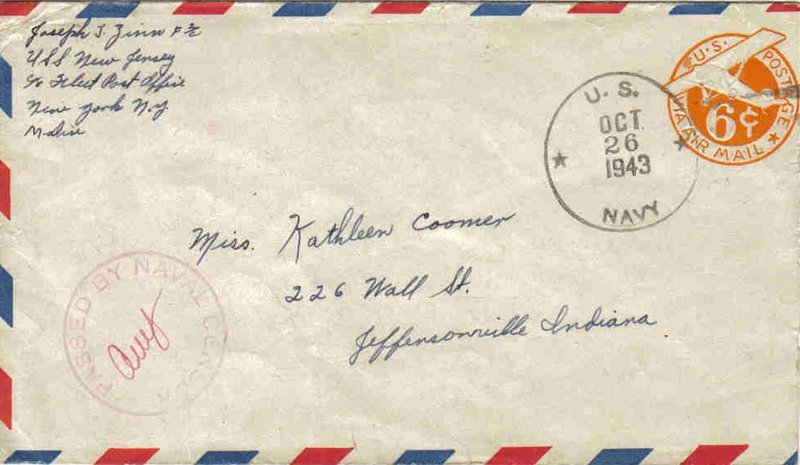 Joseph J. Zinn F 2/c
USS New Jersey
c/o Fleet Post Office
New York N.Y.
U.S. POSTAGE
VIA AIR MAIL
6¢
U.S.
OCT
26
1943
NAVY
Miss. Kathleen Coomer
226 Wall St.
Jeffersonville Indiana
PASSED BY NAVAL CENSOR